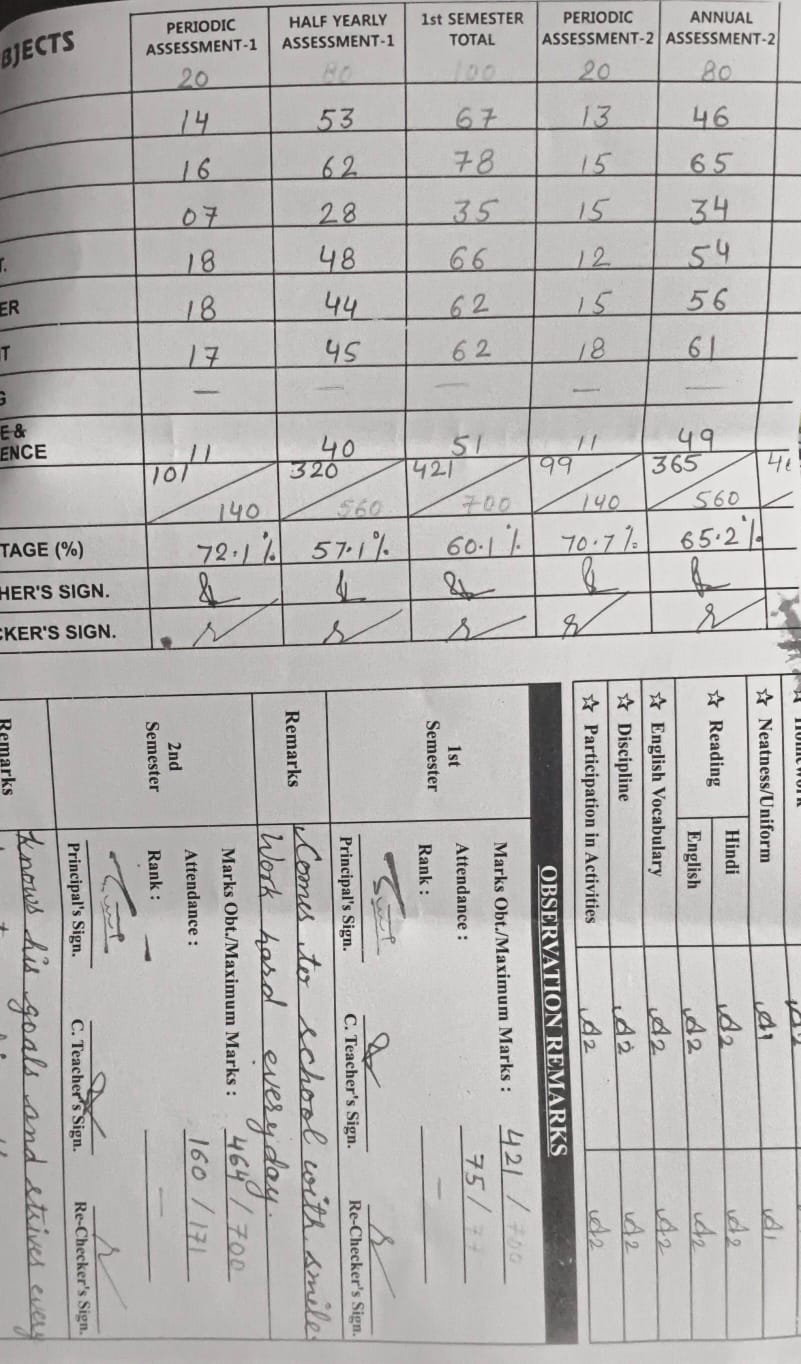 BJECTS PERIODIC ASSESSMENT-1 HALF YEARLY ASSESSMENT-1 1st SEMESTER TOTAL PERIODIC ASSESSMENT-2 ANNUAL ASSESSMENT-2
20 80 100 20 80
14 53 67 13 46
16 62 78 15 65
07 28 35 15 34
T. 18 48 66 12 54
ER 18 44 62 15 56
T 17 45 62 18 61
G — — — — —
E &
ENCE 11 40 51 11 49
101/140 320/560 421/700 99/140 365/560
TAGE (%) 72.1% 57.1% 60.1% 70.7% 65.2%
HER'S SIGN.
CKER'S SIGN.
☆ Neatness/Uniform A1 A1
☆ Reading Hindi A2 A2
English A2 A2
☆ English Vocabulary A2 A2
☆ Discipline A2 A2
☆ Participation in Activities A2 A2
OBSERVATION REMARKS
1st Semester
Marks Obt./Maximum Marks : 421 / 700
Attendance : 75 / 77
Rank : —
Principal's Sign. C. Teacher's Sign. Re-Checker's Sign.
Remarks Comes to school with smile.
Work hard everyday.
2nd Semester
Marks Obt./Maximum Marks : 464 / 700
Attendance : 160 / 171
Rank : — —
Principal's Sign. C. Teacher's Sign. Re-Checker's Sign.
Remarks knows his goals and strives every